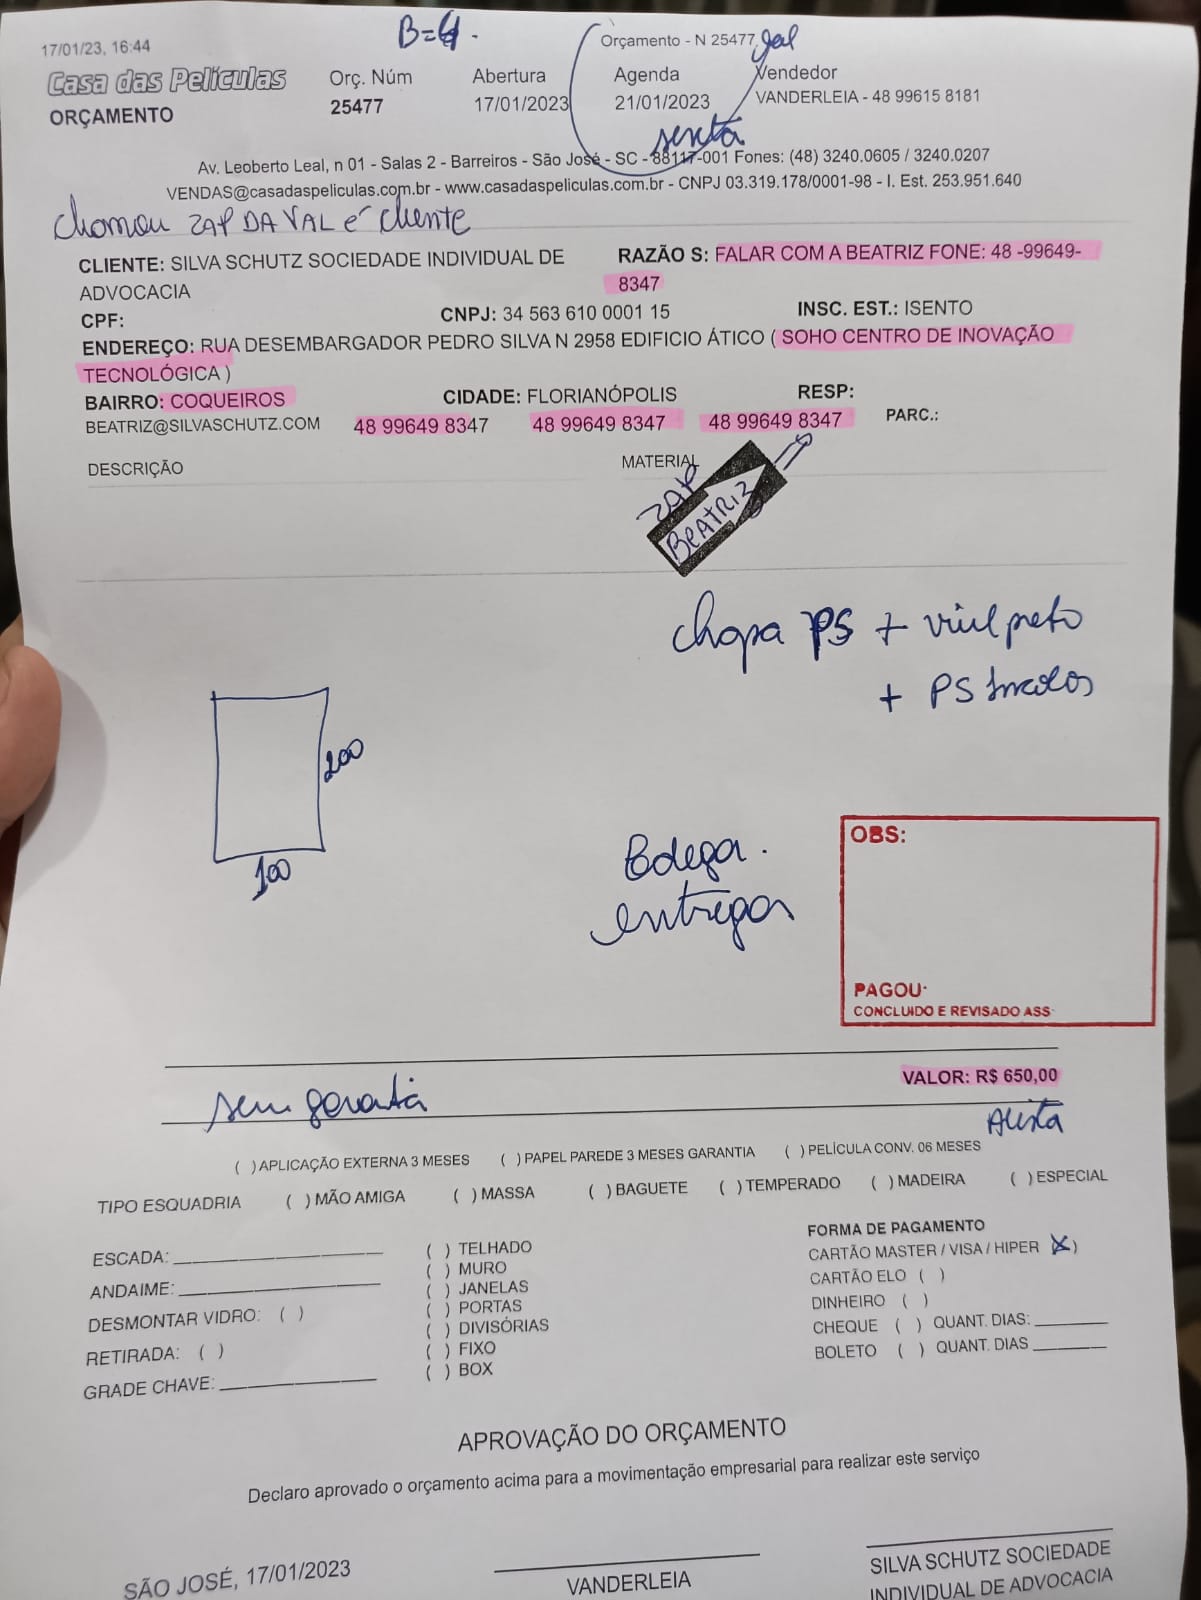 B=4.
17/01/23, 16:44
Orçamento - N 25477
Casa das Películas
ORÇAMENTO
Orç. Núm
25477
Abertura
17/01/2023
Agenda
21/01/2023
sexta
Vendedor
VANDERLEIA - 48 99615 8181
Av. Leoberto Leal, n 01 - Salas 2 - Barreiros - São José - SC - 88117-001 Fones: (48) 3240.0605 / 3240.0207
VENDAS@casadaspeliculas.com.br - www.casadaspeliculas.com.br - CNPJ 03.319.178/0001-98 - I. Est. 253.951.640
chamou ZAP DA VAL é cliente
CLIENTE: SILVA SCHUTZ SOCIEDADE INDIVIDUAL DE
ADVOCACIA
RAZÃO S: FALAR COM A BEATRIZ FONE: 48 -99649-
8347
CPF:
CNPJ: 34 563 610 0001 15
INSC. EST.: ISENTO
ENDEREÇO: RUA DESEMBARGADOR PEDRO SILVA N 2958 EDIFICIO ÁTICO ( SOHO CENTRO DE INOVAÇÃO
TECNOLÓGICA )
BAIRRO: COQUEIROS
CIDADE: FLORIANÓPOLIS
RESP:
BEATRIZ@SILVASCHUTZ.COM
48 99649 8347
48 99649 8347
48 99649 8347
PARC.:
DESCRIÇÃO
MATERIAL
ZAP
BEATRIZ
chapa PS + vinil preto
+ PS
200
100
entregar
OBS:
PAGOU:
CONCLUIDO E REVISADO ASS
VALOR: R$ 650,00
Avista
sem garantia
( ) APLICAÇÃO EXTERNA 3 MESES ( ) PAPEL PAREDE 3 MESES GARANTIA ( ) PELÍCULA CONV. 06 MESES
TIPO ESQUADRIA ( ) MÃO AMIGA ( ) MASSA ( ) BAGUETE ( ) TEMPERADO ( ) MADEIRA ( ) ESPECIAL
ESCADA:
ANDAIME:
DESMONTAR VIDRO: ( )
RETIRADA: ( )
GRADE CHAVE:
( ) TELHADO
( ) MURO
( ) JANELAS
( ) PORTAS
( ) DIVISÓRIAS
( ) FIXO
( ) BOX
FORMA DE PAGAMENTO
CARTÃO MASTER / VISA / HIPER (X)
CARTÃO ELO ( )
DINHEIRO ( )
CHEQUE ( ) QUANT. DIAS:
BOLETO ( ) QUANT. DIAS
APROVAÇÃO DO ORÇAMENTO
Declaro aprovado o orçamento acima para a movimentação empresarial para realizar este serviço
SÃO JOSÉ, 17/01/2023
VANDERLEIA
SILVA SCHUTZ SOCIEDADE
INDIVIDUAL DE ADVOCACIA